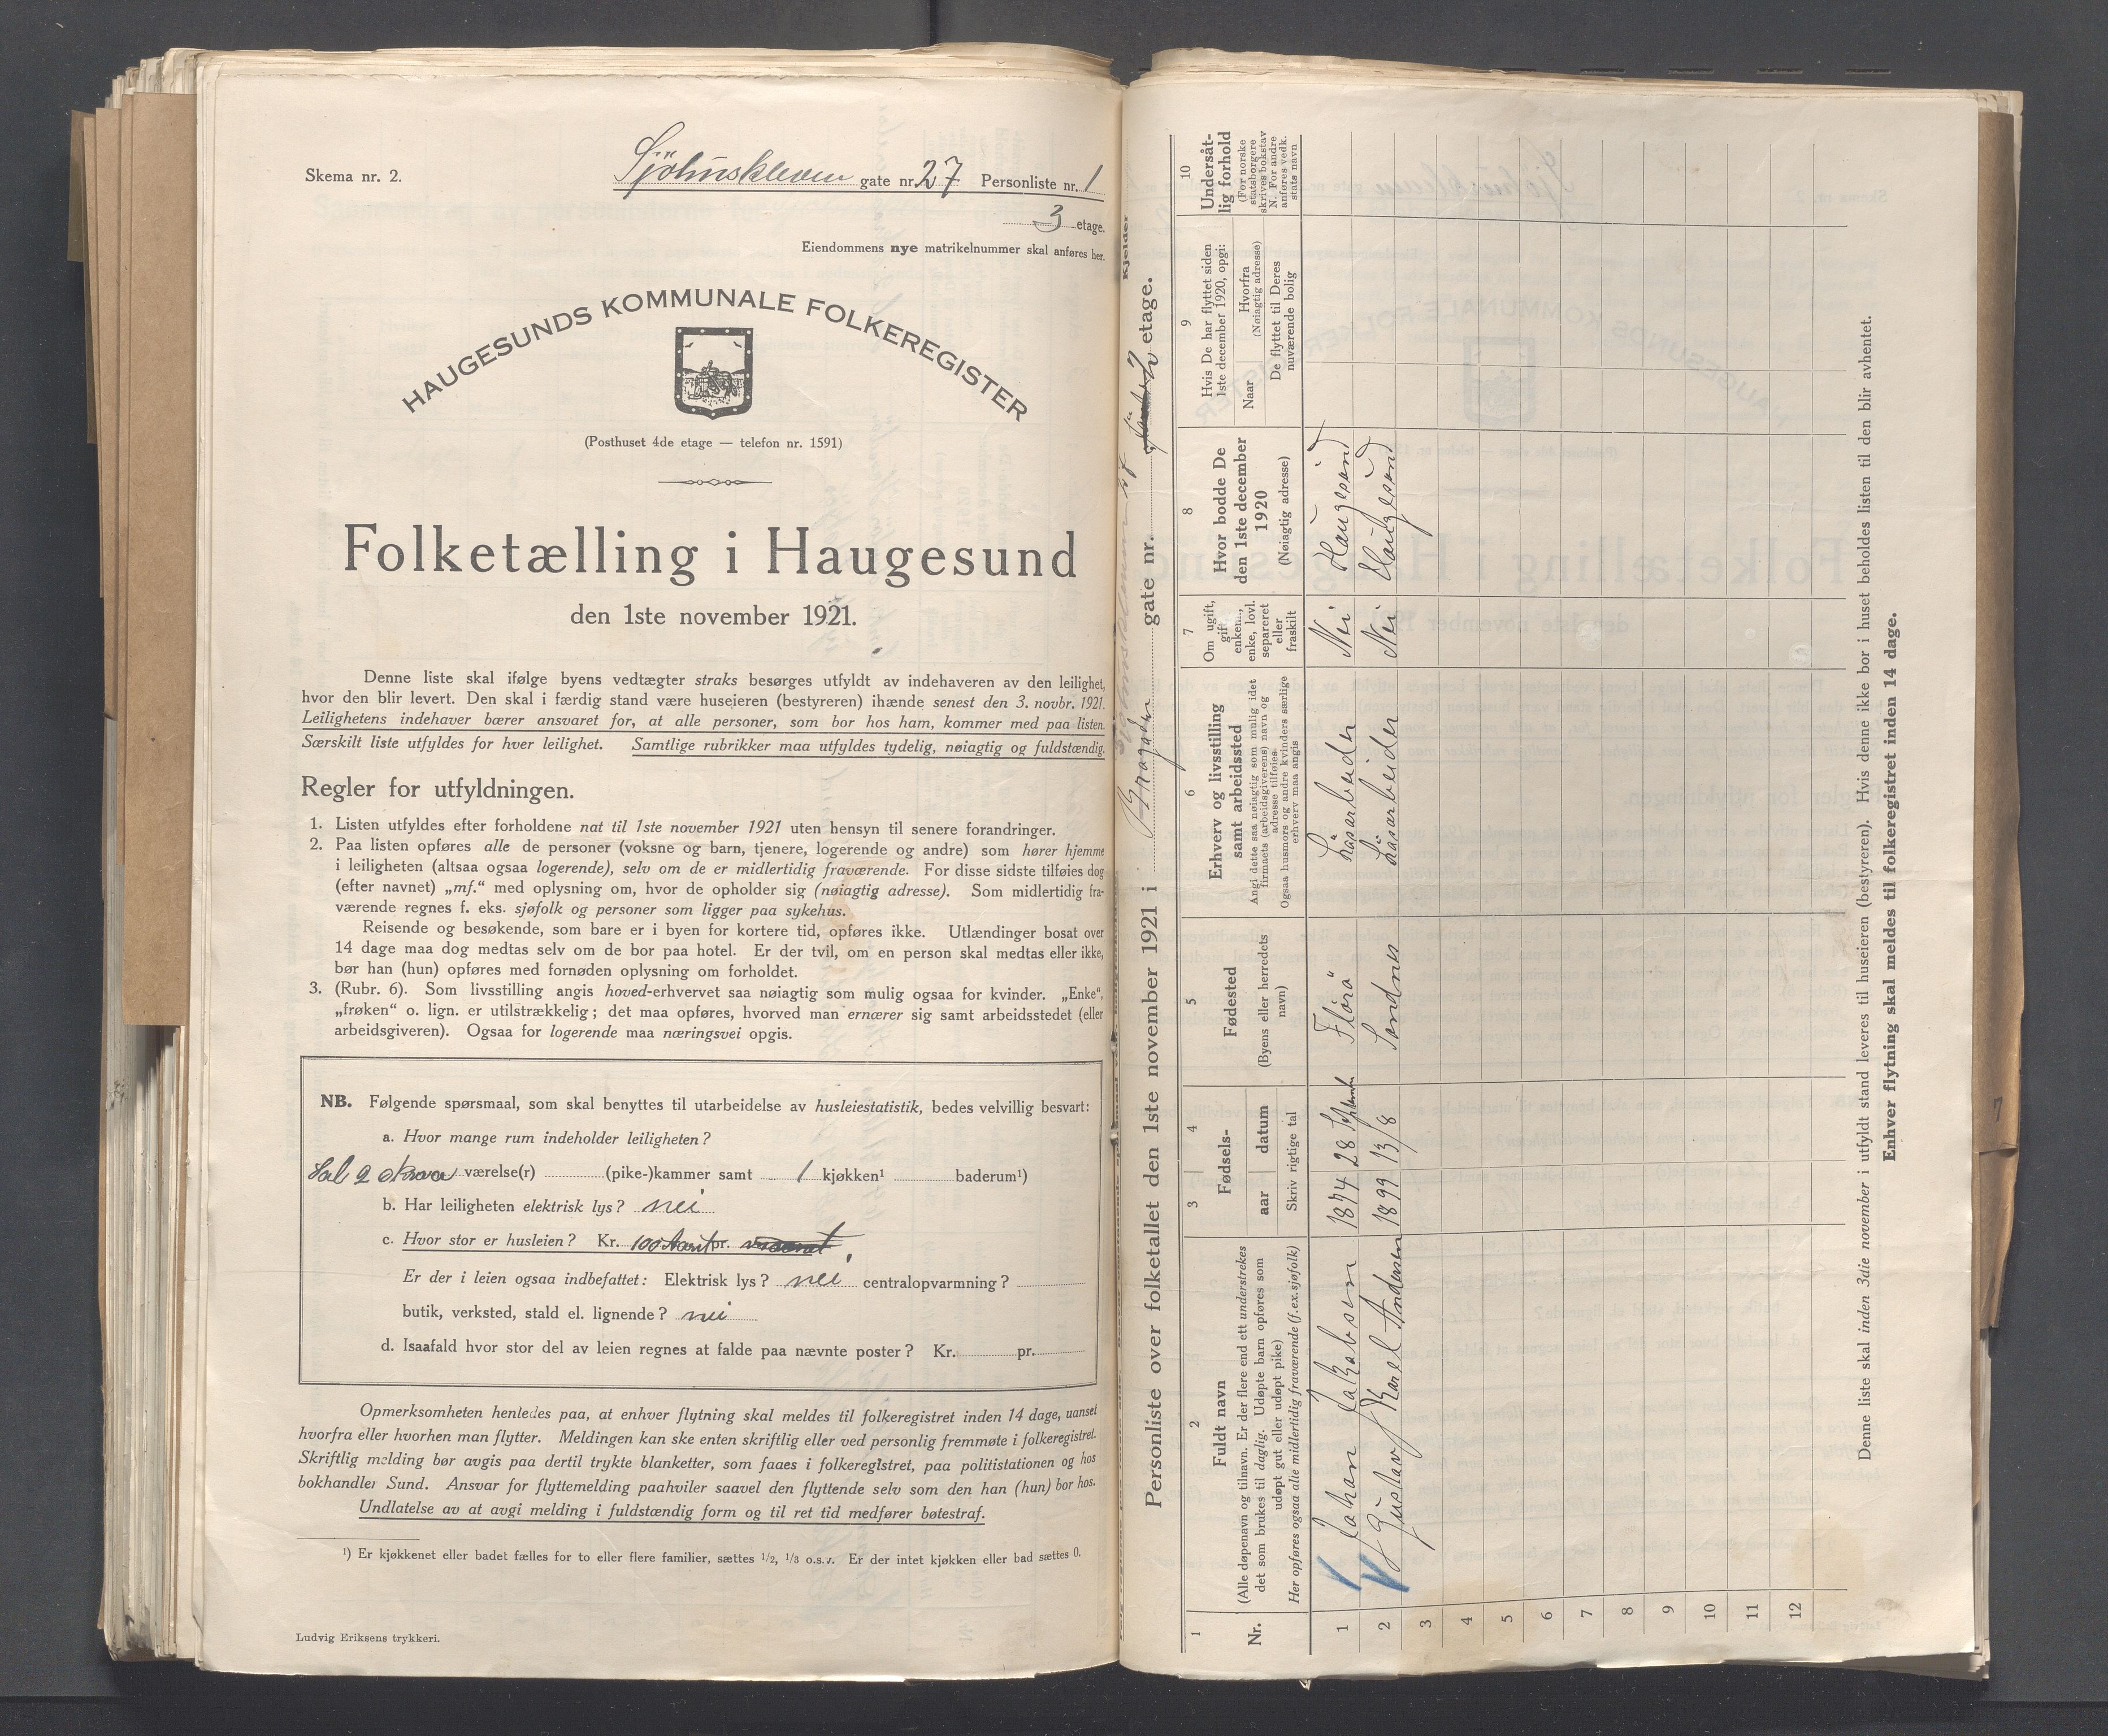 Skema nr. 2.
Sjöhuskleven gate nr. 27 Personliste nr. 1
3 etage.
Eiendommens nye matrikelnummer skal anføres her.
HAUGESUNDS KOMMUNALE FOLKEREGISTER
(Posthuset 4de etage — telefon nr. 1591)
Folketælling i Haugesund
den 1ste november 1921.
Denne liste skal ifølge byens vedtægter straks besørges utfyldt av indehaveren av den leilighet,
hvor den blir levert. Den skal i færdig stand være huseieren (bestyreren) ihænde senest den 3. novbr. 1921.
Leilighetens indehaver bærer ansvaret for, at alle personer, som bor hos ham, kommer med paa listen.
Særskilt liste utfyldes for hver leilighet. Samtlige rubrikker maa utfyldes tydelig, nøiagtig og fuldstændig.
Regler for utfyldningen.
1. Listen utfyldes efter forholdene nat til 1ste november 1921 uten hensyn til senere forandringer.
2. Paa listen opføres alle de personer (voksne og barn, tjenere, logerende og andre) som hører hjemme
i leiligheten (altsaa ogsaa logerende), selv om de er midlertidig fraværende. For disse sidste tilføies dog
(efter navnet) „mf.“ med oplysning om, hvor de opholder sig (nøiagtig adresse). Som midlertidig fra-
værende regnes f. eks. sjøfolk og personer som ligger paa sykehus.
Reisende og besøkende, som bare er i byen for kortere tid, opføres ikke. Utlændinger bosat over
14 dage maa dog medtas selv om de bor paa hotel. Er der tvil, om en person skal medtas eller ikke,
bør han (hun) opføres med fornøden oplysning om forholdet.
3. (Rubr. 6). Som livsstilling angis hoved-erhvervet saa nøiagtig som mulig ogsaa for kvinder. „Enke“,
„frøken“ o. lign. er utilstrækkelig; det maa opføres, hvorved man ernærer sig samt arbeidsstedet (eller
arbeidsgiveren). Ogsaa for logerende maa næringsvei opgis.
NB. Følgende spørsmaal, som skal benyttes til utarbeidelse av husleiestatistik, bedes velvillig besvart:
a. Hvor mange rum indeholder leiligheten?
Sal 2 værelse(r) (pike-)kammer samt 1 kjøkken¹ baderum¹)
b. Har leiligheten elektrisk lys? nei
c. Hvor stor er husleien? Kr. 100 pr.
Er der i leien ogsaa indbefattet: Elektrisk lys? nei centralopvarmning?
butik, verksted, stald el. lignende? nei
d. Isaafald hvor stor del av leien regnes at falde paa nævnte poster? Kr. pr.
Opmerksomheten henledes paa, at enhver flytning skal meldes til folkeregistret inden 14 dage, uanset
hvorfra eller hvorhen man flytter. Meldingen kan ske enten skriftlig eller ved personlig fremmøte i folkeregistret.
Skriftlig melding bør avgis paa dertil trykte blanketter, som faaes i folkeregistret, paa politistationen og hos
bokhandler Sund. Ansvar for flyttemelding paahviler saavel den flyttende selv som den han (hun) bor hos.
Undlatelse av at avgi melding i fuldstændig form og til ret tid medfører bøtestraf.
¹) Er kjøkkenet eller badet fælles for to eller flere familier, sættes 1/2, 1/3 o.s.v. Er der intet kjøkken eller bad sættes 0.
Ludvig Eriksens trykkeri.
Kjelder
Personliste over folketallet den 1ste november 1921 i gate nr. etage.
1 2 3 4 5 6 7 8 9 10
Nr.
Fuldt navn
(Alle døpenavn og tilnavn. Er der flere end ett understrekes
det som brukes til daglig. Udøpte barn opføres som
udøpt gut eller udøpt pike)
Her opføres ogsaa alle midlertidig fraværende (f.ex.sjøfolk)
Fødsels-
aar datum
Skriv rigtige tal
Fødested
(Byens eller herredets
navn)
Erhverv og livsstilling
samt arbeidssted
Angi dette saa nøiagtig som mulig idet
firmaets (arbeidsgiverens) navn og
adresse tilføies.
Ogsaa husmors og andre kvinders særlige
erhverv maa angis
Om ugift,
gift,
enkem.,
enke, lovl.
separeret
eller
fraskilt
Hvor bodde De
den 1ste december
1920
(Nøiagtig adresse)
Hvis De har flyttet siden
1ste december 1920, opgi:
Naar
Hvorfra
(Nøiagtig adresse)
De flyttet til Deres
nuværende bolig
Undersåt-
lig forhold
(For norske
statsborgere
skrives bokstav
N. For andre
anføres vedk.
stats navn
1 Johan Jakobsen 1874 28 September Florö Løsarbeider Nei Haugesund
2 Gustav Karel Andersen 1899 13/8 Sandnes Løsarbeider Nei Haugesund
3
4
5
6
7
8
9
10
11
12
Denne liste skal inden 3die november i utfyldt stand leveres til huseieren (bestyreren). Hvis denne ikke bor i huset beholdes listen til den blir avhentet.
Enhver flytning skal meldes til folkeregistret inden 14 dage.